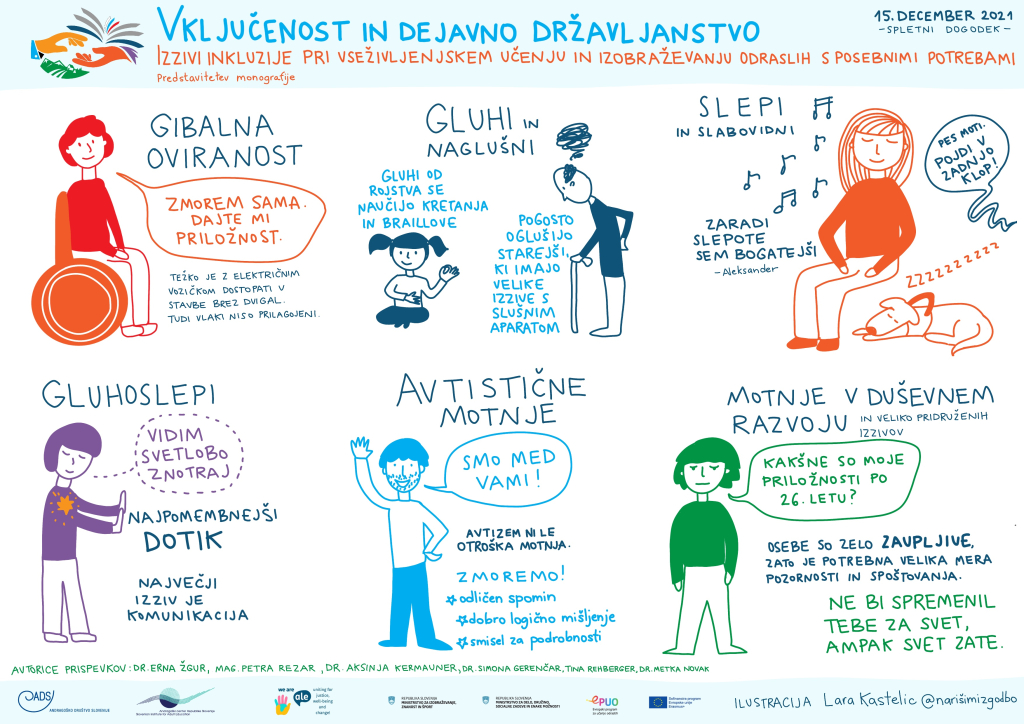 VKLJUČENOST IN DEJAVNO DRŽAVLJANSTVO
15. DECEMBER 2021
- SPLETNI DOGODEK -
IZZIVI INKLUZIJE PRI VSEŽIVLJENJSKEM UČENJU IN IZOBRAŽEVANJU ODRASLIH S POSEBNIMI POTREBAMI
Predstavitetev monografije
GIBALNA
OVIRANOST
ZMOREM SAMA.
DAJTE MI
PRILOŽNOST.
TEŽKO JE Z ELEKTRIČNIM
VOZIČKOM DOSTOPATI V
STAVBE BREZ DVIGAL.
TUDI VLAKI NISO PRILAGOJENI.
GLUHI IN
NAGLUŠNI
GLUHI OD
ROJSTVA SE
NAUČIJO KRETANJA
IN BRAILLOVE
POGOSTO
OGLUŠIJO
STAREJŠI,
KI IMAJO
VELIKE
IZZIVE S
SLUŠNIM
APARATOM
SLEPI
IN SLABOVIDNI
PES MOTI.
POJDI V
ZADNJO
KLOP!
ZARADI
SLEPOTE
SEM BOGATEJŠI
- Aleksander
ZZZZZZZZZZ
GLUHOSLEPI
VIDIM
SVETLOBO
ZNOTRAJ
NAJPOMEMBNEJŠI
DOTIK
NAJVEČJI
IZZIV JE
KOMUNIKACIJA
AVTISTIČNE
MOTNJE
SMO MED
VAMI!
AVTIZEM NI LE
OTROŠKA MOTNJA.
ZMOREMO!
odličen spomin
dobro logično mišljenje
smisel za podrobnosti
MOTNJE V DUŠEVNEM
RAZVOJU IN VELIKO PRIDRUŽENIH
IZZIVOV
KAKŠNE SO MOJE
PRILOŽNOSTI PO
26. LETU?
OSEBE SO ZELO ZAUPLJIVE,
ZATO JE POTREBNA VELIKA MERA
POZORNOSTI IN SPOŠTOVANJA.
NE BI SPREMENIL
TEBE ZA SVET,
AMPAK SVET ZATE.
AVTORICE PRISPEVKOV: DR. ERNA ŽGUR, MAG. PETRA REZAR, DR. AKSINJA KERMAUNER, DR. SIMONA GERENČAR, TINA REHBERGER, DR. METKA NOVAK
ADS
ANDRAGOŠKO DRUŠTVO SLOVENIJE
we are able
uniting for
justice,
well-being
and
change!
REPUBLIKA SLOVENIJA
MINISTRSTVO ZA IZOBRAŽEVANJE,
ZNANOST IN ŠPORT
REPUBLIKA SLOVENIJA
MINISTRSTVO ZA DELO, DRUŽINO,
SOCIALNE ZADEVE IN ENAKE MOŽNOSTI
ePUO
ILUSTRACIJA Lara Kastelic @narišimizgodbo